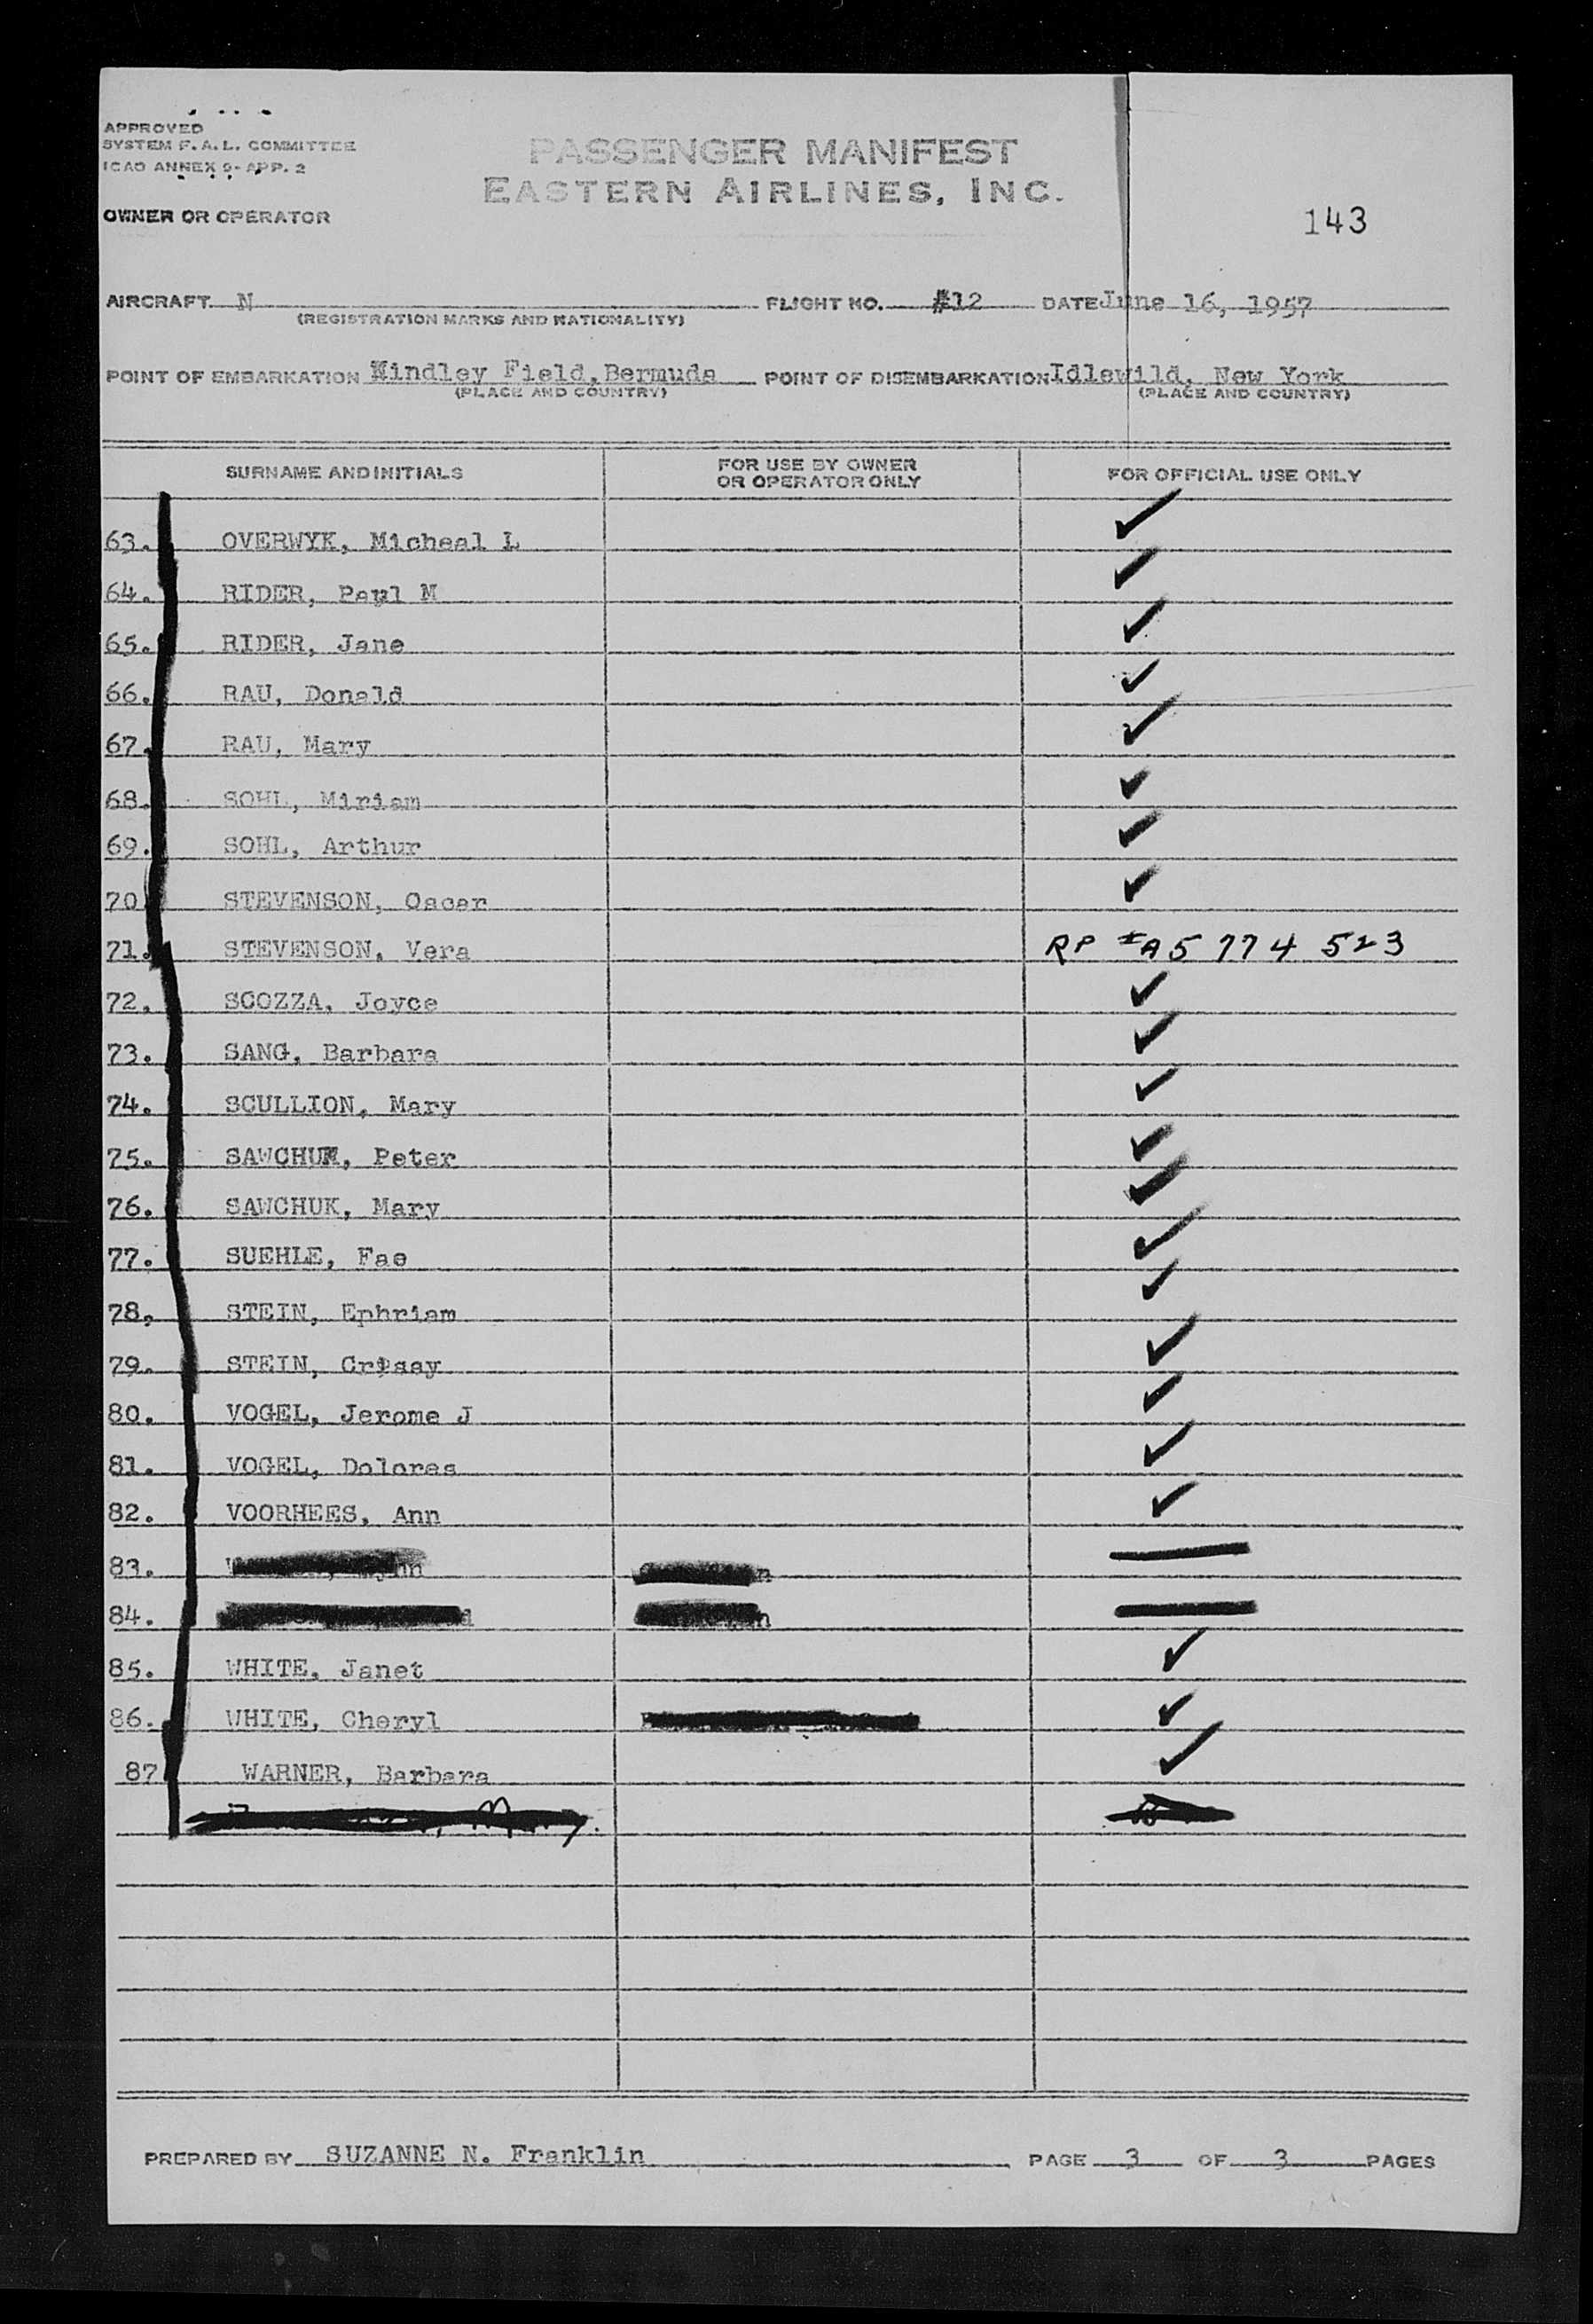 APPROVED
SYSTEM F. A. L. COMMITTEE
ICAO ANNEX 9- APP. 2
PASSENGER MANIFEST
EASTERN AIRLINES, INC.
OWNER OR OPERATOR
143
AIRCRAFT N FLIGHT NO. #12 DATE June 16, 1957
(REGISTRATION MARKS AND NATIONALITY)
POINT OF EMBARKATION Kindley Field, Bermuda POINT OF DISEMBARKATION Idlewild, New York
(PLACE AND COUNTRY) (PLACE AND COUNTRY)
SURNAME AND INITIALS FOR USE BY OWNER OR OPERATOR ONLY FOR OFFICIAL USE ONLY
63. OVERWYK, Micheal L ✓
64. RIDER, Paul M ✓
65. RIDER, Jane ✓
66. RAU, Donald ✓
67. RAU, Mary ✓
68. SOHL, Miriam ✓
69. SOHL, Arthur ✓
70 STEVENSON, Oscar ✓
71. STEVENSON, Vera RP #A5 774 523
72. SCOZZA, Joyce ✓
73. SANG, Barbara ✓
74. SCULLION, Mary ✓
75. SAWCHUK, Peter ✓
76. SAWCHUK, Mary ✓
77. SUEHLE, Fae ✓
78. STEIN, Ephriam ✓
79. STEIN, ✓
80. VOGEL, Jerome J ✓
81. VOGEL, Dolores ✓
82. VOORHEES, Ann ✓
83.
84.
85. WHITE, Janet ✓
86. WHITE, Cheryl ✓
87 WARNER, Barbara ✓
PREPARED BY SUZANNE N. Franklin PAGE 3 OF 3 PAGES